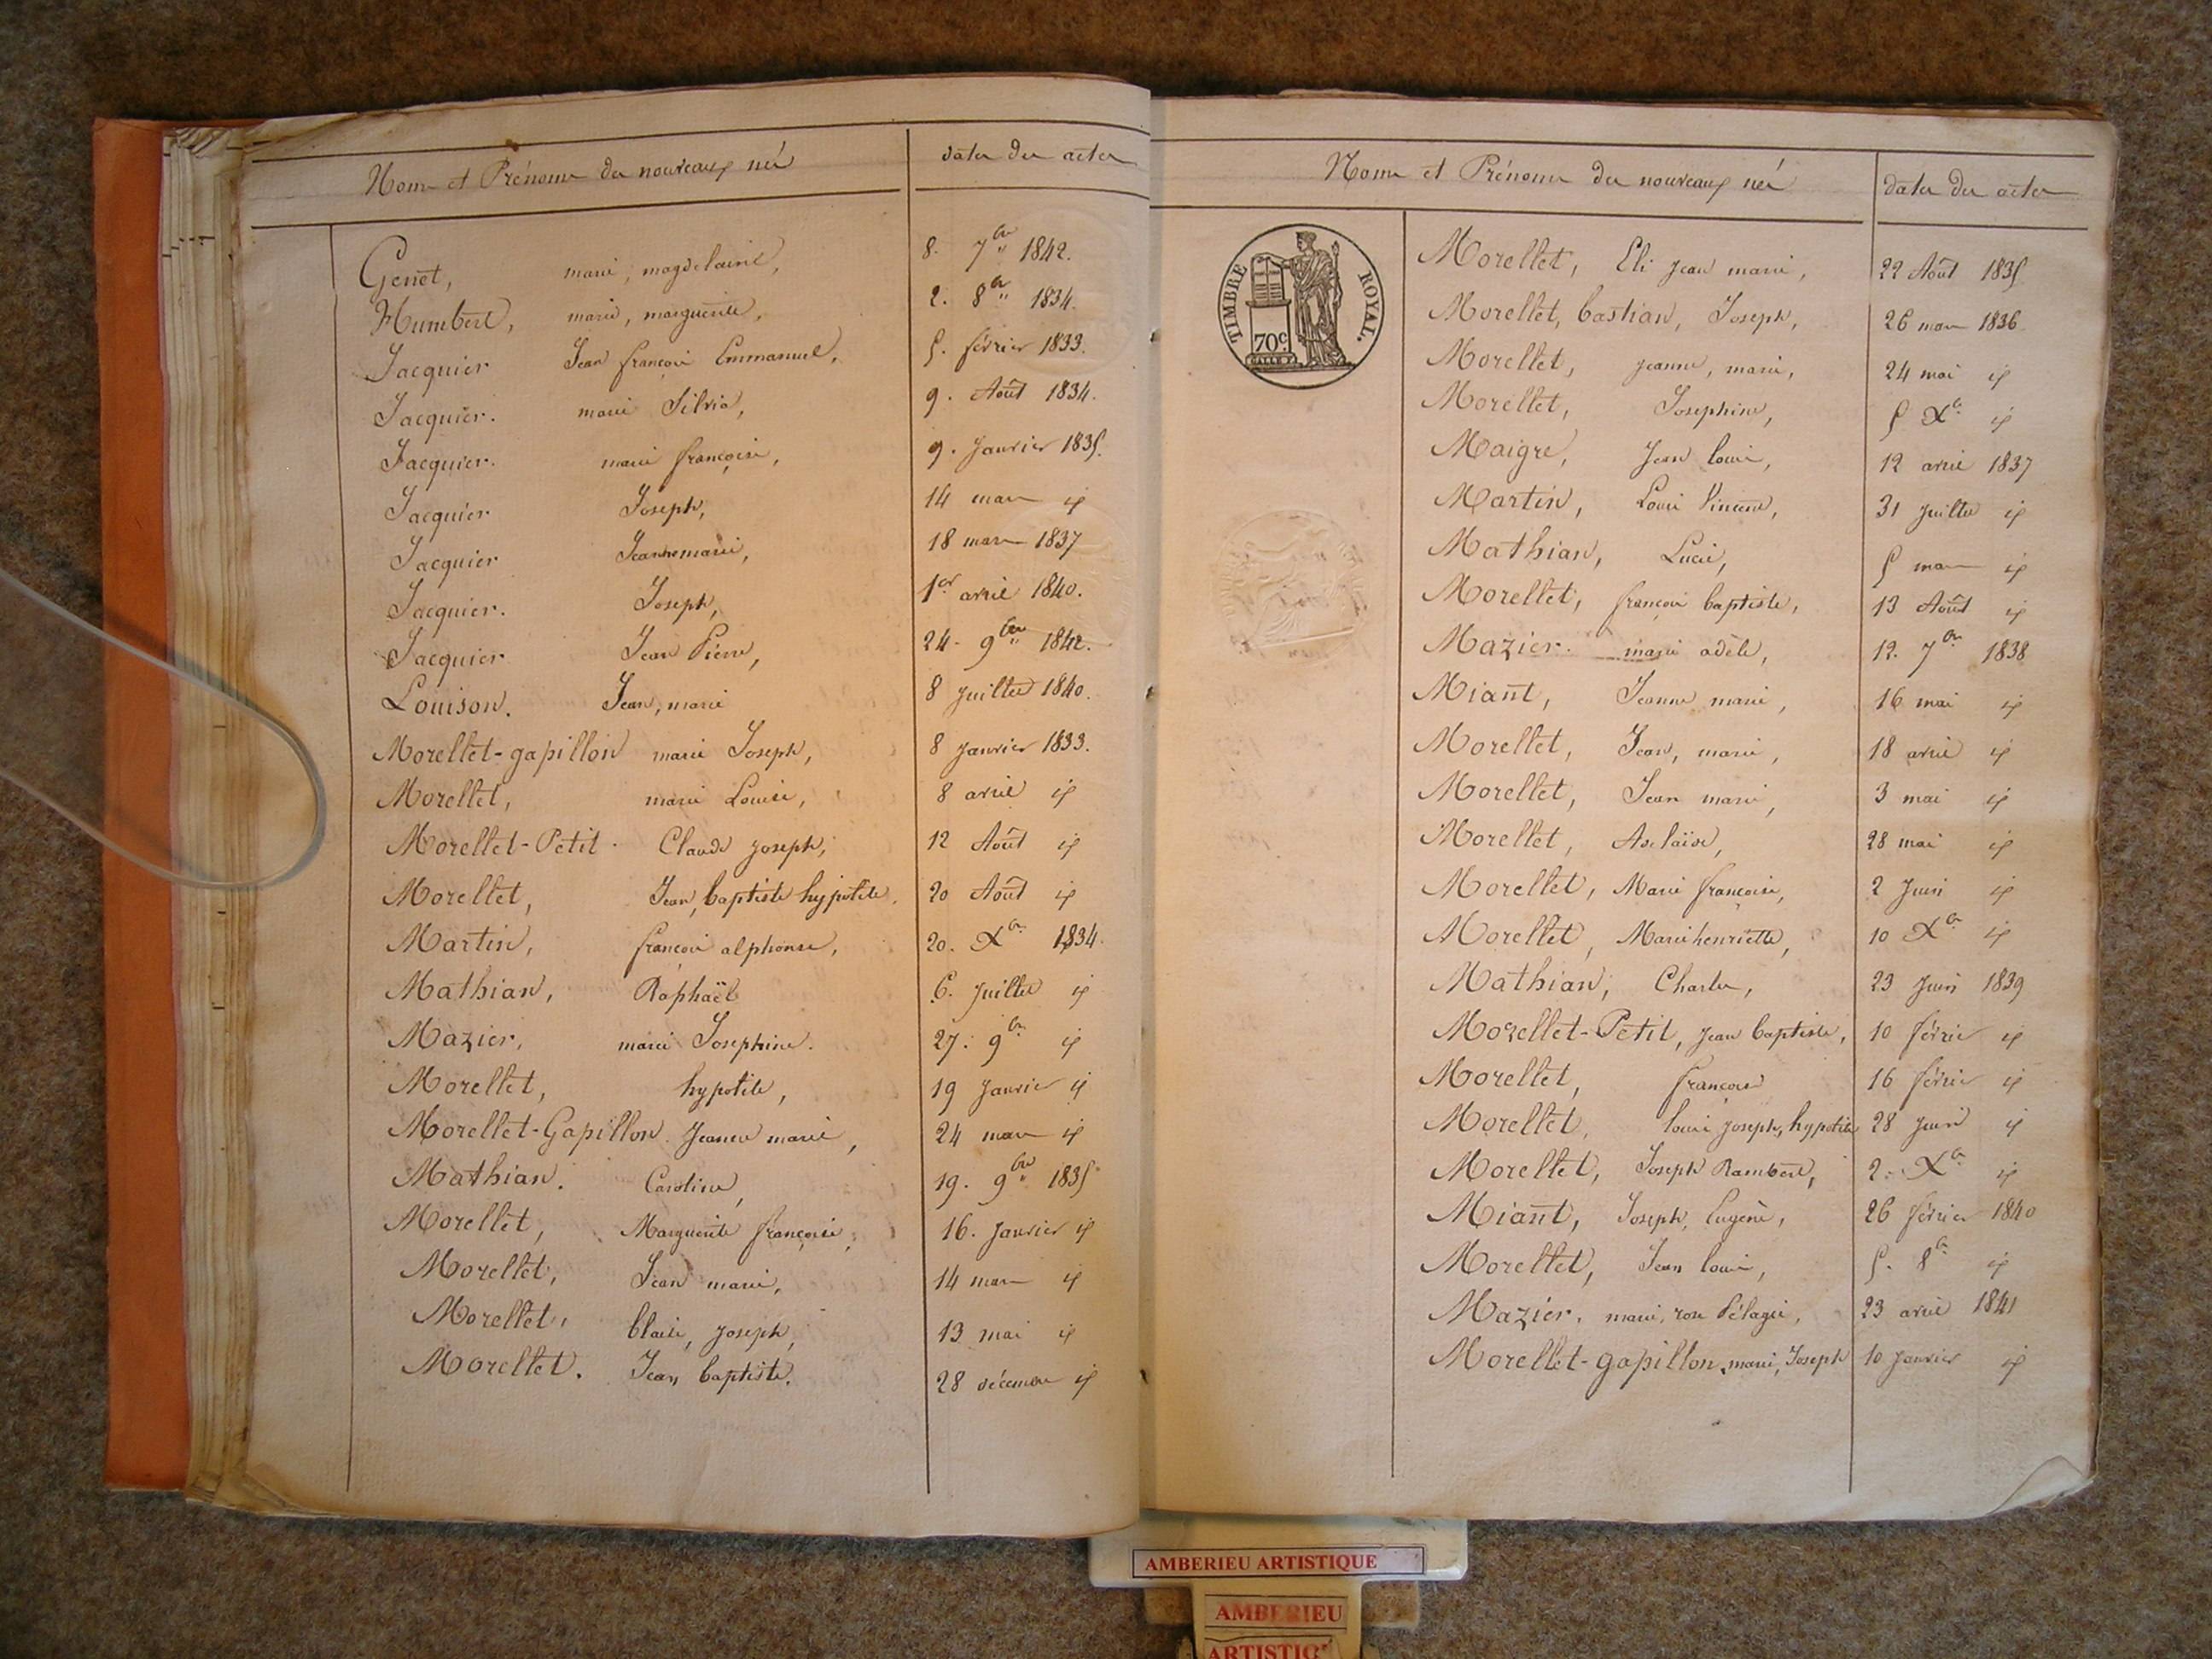 Noms et Prénoms des nouveaux nés dates des actes
Genet, marie, magdelaine, 8. 7bre 1842.
Humbert, marie, marguerite, 2. 8bre 1834.
Jacquier Jean françois Emmanuel, 5. février 1833.
Jacquier. marie Silvia, 9. Août 1834.
Jacquier. marie françoise, 9. Janvier 1835.
Jacquier Joseph, 14 mars id
Jacquier Jeannemarie, 18 mars 1837
Jacquier. Joseph, 1er avril 1840.
Jacquier Jean Pierre, 24. 9bre 1842.
Louison. Jean, marie 8 Juillet 1840.
Morellet-gapillon marie Joseph, 8 Janvier 1833.
Morellet, marie Louise, 8 avril id
Morellet-Petit. Claude Joseph, 12 Août id
Morellet, Jean, baptiste hypolite, 20 Août id
Martin, françois alphonse, 20. Xbre 1834.
Mathian, Raphaël 6. Juillet id
Mazier, marie Josephine. 27. 9bre id
Morellet, hypolite, 19 Janvier id
Morellet-Gapillon. Jeanne marie, 24 mars id
Mathian. Caroline, 19. 9bre 1835
Morellet, Marguerite françoise, 16. Janvier id
Morellet, Jean marie, 14 mars id
Morellet, blaise, Joseph, 13 mai id
Morellet. Jean baptiste. 28 décembre id
Noms et Prénoms des nouveaux nés dates des actes
TIMBRE ROYAL.
70c.
Morellet, Eli Jean marie, 22 Août 1835
Morellet, bastian, Joseph, 26 mars 1836
Morellet, Jeanne, marie, 24 mai id
Morellet, Josephine, 5 Xbre id
Maigre, Jean louis, 12 avril 1837
Martin, Louis Vincent, 31 Juillet id
Mathian, Lucie, 5 mars id
Morellet, françois baptiste, 13 Août id
Mazier. marie adèle, 12. 7bre 1838
Miant, Jeanne marie, 16 mai id
Morellet, Jean, marie, 18 avril id
Morellet, Jean marie, 3 mai id
Morellet, Adelaïde, 28 mai id
Morellet, Marie françoise, 2 Juin id
Morellet, Marie henriette, 10 Xbre id
Mathian, Charles, 23 Juin 1839
Morellet-Petit, Jean baptiste, 10 février id
Morellet, françois 16 février id
Morellet, louis Joseph, hypolite 28 Juin id
Morellet, Joseph Rambert, 2. Xbre id
Miant, Joseph, Eugène, 26 février 1840
Morellet, Jean louis, 5. 8bre id
Mazier, marie, rose Pélagie, 23 avril 1841
Morellet-gapillon, marie, Joseph 10 Janvier id
AMBERIEU ARTISTIQUE
AMBERIEU